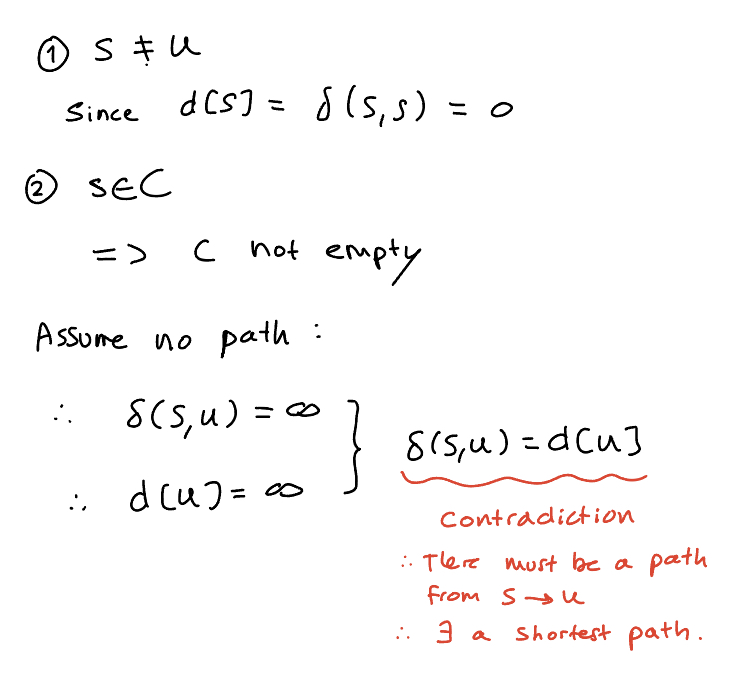 ① s ≠ u
Since d[s] = δ(s,s) = 0
② s∈C
=> C not empty
Assume no path :
∴ δ(s,u) = ∞
∴ d[u] = ∞
} δ(s,u) = d[u]
Contradiction
∴ There must be a path
from s → u
∴ ∃ a shortest path.